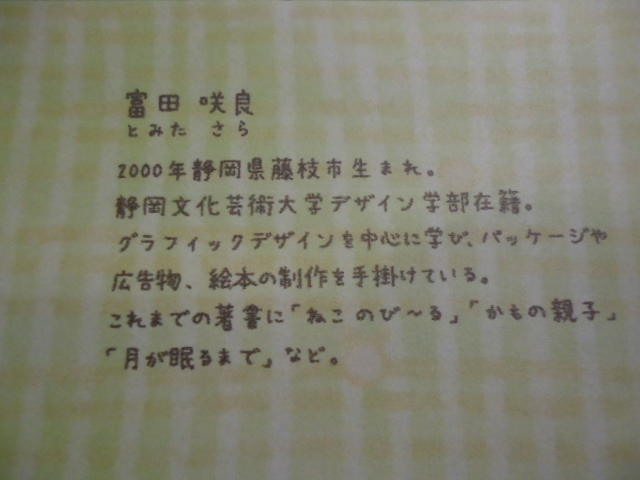 富田 咲良
とみた さら
2000年静岡県藤枝市生まれ。
静岡文化芸術大学デザイン学部在籍。
グラフィックデザインを中心に学び、パッケージや
広告物、絵本の制作を手掛けている。
これまでの著書に「ねこのび〜る」「かもの親子」
「月が眠るまで」など。